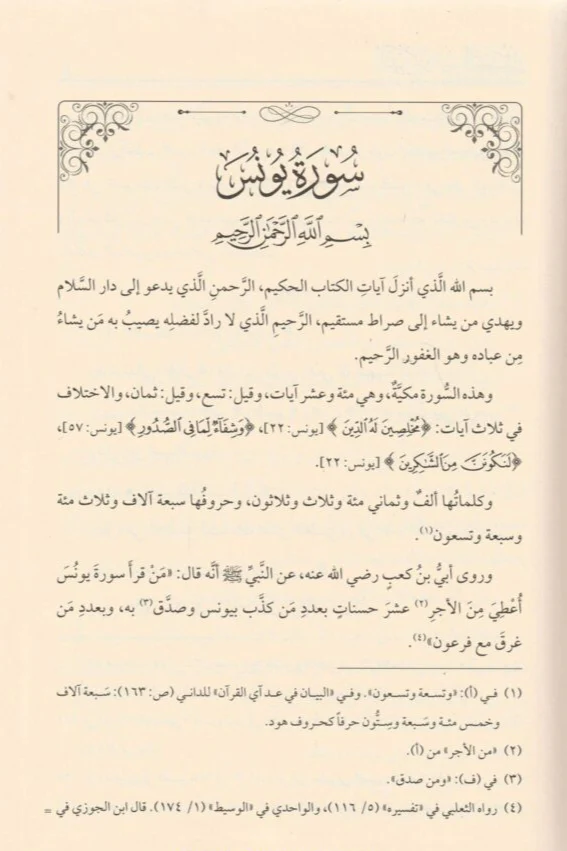 سُورَةُ يُونُسَ
بِسْمِ ٱللَّهِ ٱلرَّحْمَٰنِ ٱلرَّحِيمِ
بسم الله الَّذي أنزلَ آياتِ الكتاب الحكيم، الرَّحمنِ الَّذي يدعو إلى دار السَّلام
ويهدي من يشاء إلى صراط مستقيم، الرَّحيمِ الَّذي لا رادَّ لفضلِه يصيبُ به مَن يشاءُ
مِن عباده وهو الغفور الرَّحيم.
وهذه السُّورة مكيَّةٌ، وهي مئة وعشر آيات، وقيل: تسع، وقيل: ثمان، والاختلاف
في ثلاث آيات: ﴿مُخْلِصِينَ لَهُ الدِّينَ﴾ [يونس: ٢٢]، ﴿وَشِفَآءٌ لِّمَا فِي ٱلصُّدُورِ﴾ [يونس: ٥٧]،
﴿لَنَكُونَنَّ مِنَ ٱلشَّٰكِرِينَ﴾ [يونس: ٢٢].
وكلماتُها ألفٌ وثماني مئة وثلاث وثلاثون، وحروفُها سبعة آلاف وثلاث مئة
وسبعة وتسعون(١).
وروى أبيُّ بنُ كعبٍ رضي الله عنه، عن النَّبيِّ ﷺ أنَّه قال: «مَنْ قرأ سورةَ يونُسَ
أُعْطِيَ مِنَ الأجرِ(٢) عشرَ حسناتٍ بعددِ مَن كذَّب بيونس وصدَّق(٣) به، وبعددِ مَن
غرقَ مع فرعون»(٤).
(١) في (أ): «وتسعة وتسعون». وفي «البيان في عد آي القرآن» للداني (ص: ١٦٣): سَبعة آلاف
وخمس مئة وسَبعة وسِتُّون حرفاً كحروف هود.
(٢) «من الأجر» من (أ).
(٣) في (ف): «ومن صدق».
(٤) رواه الثعلبي في «تفسيره» (٥/ ١١٦)، والواحدي في «الوسيط» (١/ ١٧٤). قال ابن الجوزي في =